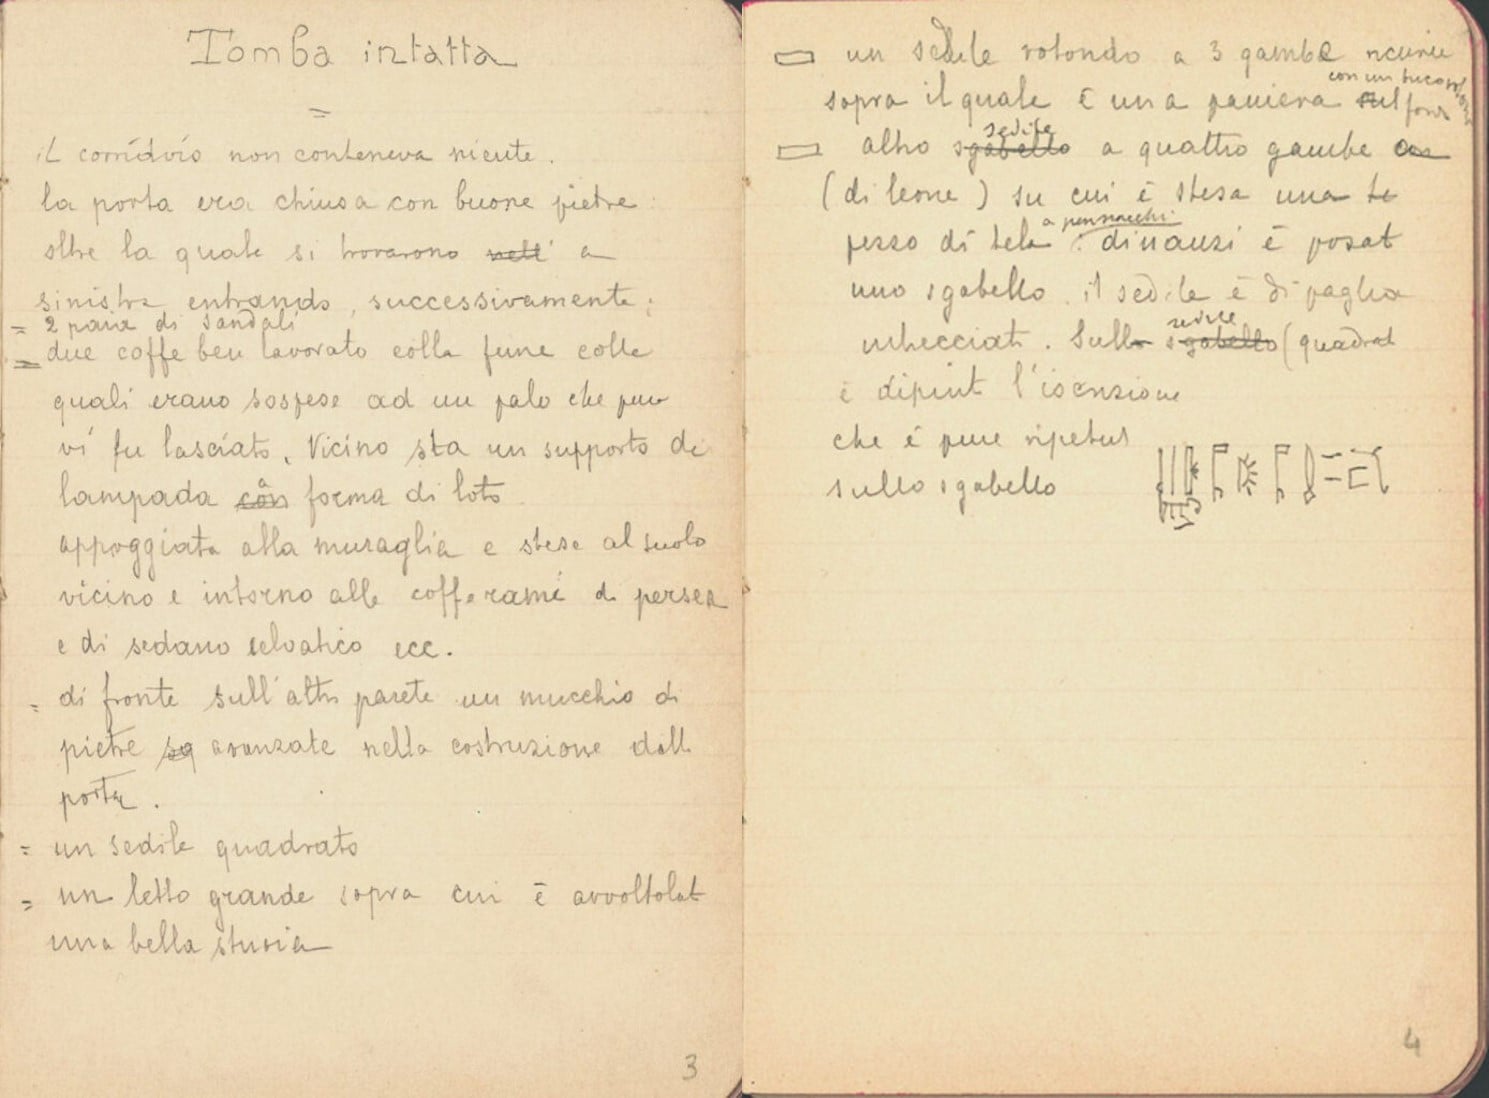 Tomba intatta
=
il corridoio non conteneva niente.
la porta era chiusa con buone pietre:
oltre la quale si trovarono nell' a
sinistra entrando, successivamente:
= 2 paia di sandali
= due coffe ben lavorato colla fune colle
quali erano sospese ad un palo che pure
vi fu lasciato. Vicino sta un supporto di
lampada con a forma di loto
appoggiata alla muraglia e stese al suolo
vicino e intorno alle coffe rami di persea
e di sedano selvatico ecc.
= di fronte sull'altr parete un mucchio di
pietre avanzate nella costruzione dell
porta.
= un sedile quadrato
= un letto grande sopra cui è avvoltolat
una bella stuoia
3
un sedile rotondo a 3 gambe
con un buco
sopra il quale è una paniera sul fondo
sedile
altro sgabello a quattro gambe
(di leone) su cui è stesa una te
a pennacchi
pezzo di tela : dinanzi è posat
uno sgabello. il sedile è di paglia
intrecciat. Sulla sedile sgabello (quadrat
è dipint l'iscrizione
che è pure ripetut
sullo sgabello
4